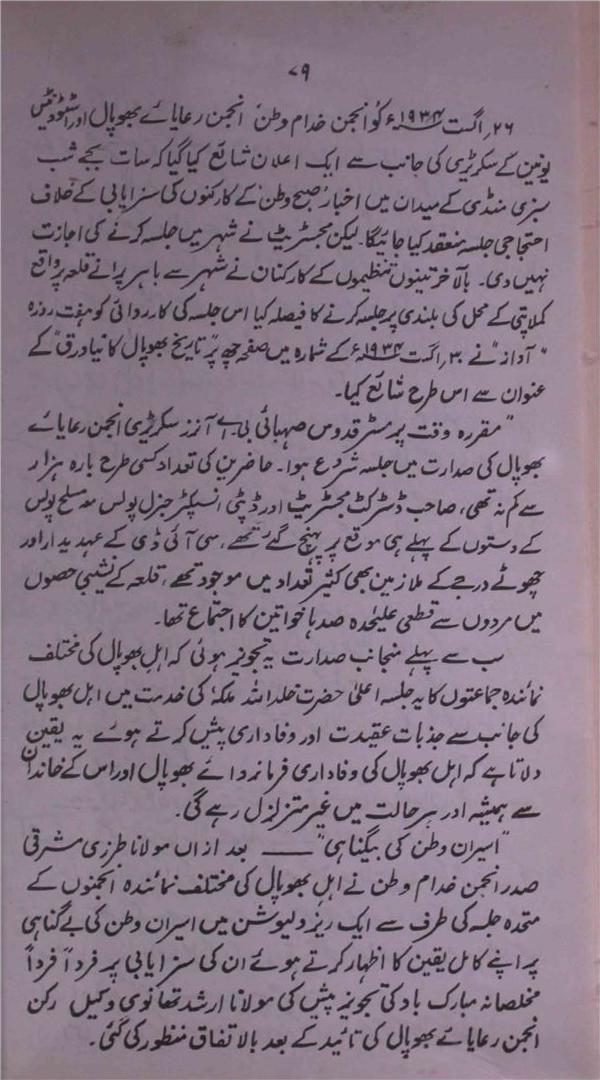 ۷۹
۲۶؍اگست ۱۹۳۴ء کو انجمن خدام وطن، انجمن رعایائے بھوپال اور اسٹوڈنٹس
یونین کے سکریٹری کی جانب سے ایک اعلان شائع کیا گیا کہ سات بجے شب
سبزی منڈی کے میدان میں اخبار ’صبح وطن‘ کے کارکنوں کی سزایابی کے خلاف
احتجاجی جلسہ منعقد کیا جائیگا۔ لیکن مجسٹریٹ نے شہر میں جلسہ کرنے کی اجازت
نہیں دی۔ بالآخر تینوں تنظیموں کے کارکنان نے شہر سے باہر پرانے قلعہ پر واقع
کملاپتی کے محل کی بلندی پر جلسہ کرنے کا فیصلہ کیا اس جلسہ کی کارروائی کو ہفت روزہ
"آواز" نے ۳۰؍اگست ۱۹۳۴ء کے شمارہ میں صفحہ چھ پر "تاریخ بھوپال کا نیا ورق" کے
عنوان سے اس طرح شائع کیا۔
"مقررہ وقت پر مسٹر قدوس صہبائی بی۔اے آنرز سکریٹری انجمن رعایائے
بھوپال کی صدارت میں جلسہ شروع ہوا۔ حاضرین کی تعداد کسی طرح بارہ ہزار
سے کم نہ تھی، صاحب ڈسٹرکٹ مجسٹریٹ اور ڈپٹی انسپکٹر جنرل پولس معہ مسلح پولس
کے دستوں کے پہلے ہی موقع پر پہنچ گئے تھے، سی آئی ڈی کے عہدیدار اور
چھوٹے درجے کے ملازمین بھی کثیر تعداد میں موجود تھے، قلعہ کے نشیبی حصوں
میں مردوں سے قطعی علیٰحدہ صدہا خواتین کا اجتماع تھا۔
سب سے پہلے منجانب صدارت یہ تجویز ہوئی کہ اہل بھوپال کی مختلف
نمائندہ جماعتوں کا یہ جلسہ اعلیٰ حضرت خلد اللہ ملکہٗ کی خدمت میں اہل بھوپال
کی جانب سے جذبات عقیدت اور وفاداری پیش کرتے ہوئے یہ یقین
دلاتا ہے کہ اہل بھوپال کی وفاداری فرمانروائے بھوپال اور اس کے خاندان
سے ہمیشہ اور ہر حالت میں غیر متزلزل رہے گی۔
"اسیران وطن کی بیگناہی" —— بعد ازاں مولانا طرزی مشرقی
صدر انجمن خدام وطن نے اہل بھوپال کی مختلف نمائندہ انجمنوں کے
متحدہ جلسہ کی طرف سے ایک ریزولیوشن میں اسیران وطن کی بے گناہی
پر اپنے کامل یقین کا اظہار کرتے ہوئے ان کی سزایابی پر فرداً فرداً
مخلصانہ مبارک باد کی تجویز پیش کی مولانا ارشد تھانوی وکیل رکن
انجمن رعایائے بھوپال کی تائید کے بعد بالاتفاق منظور کی گئی۔